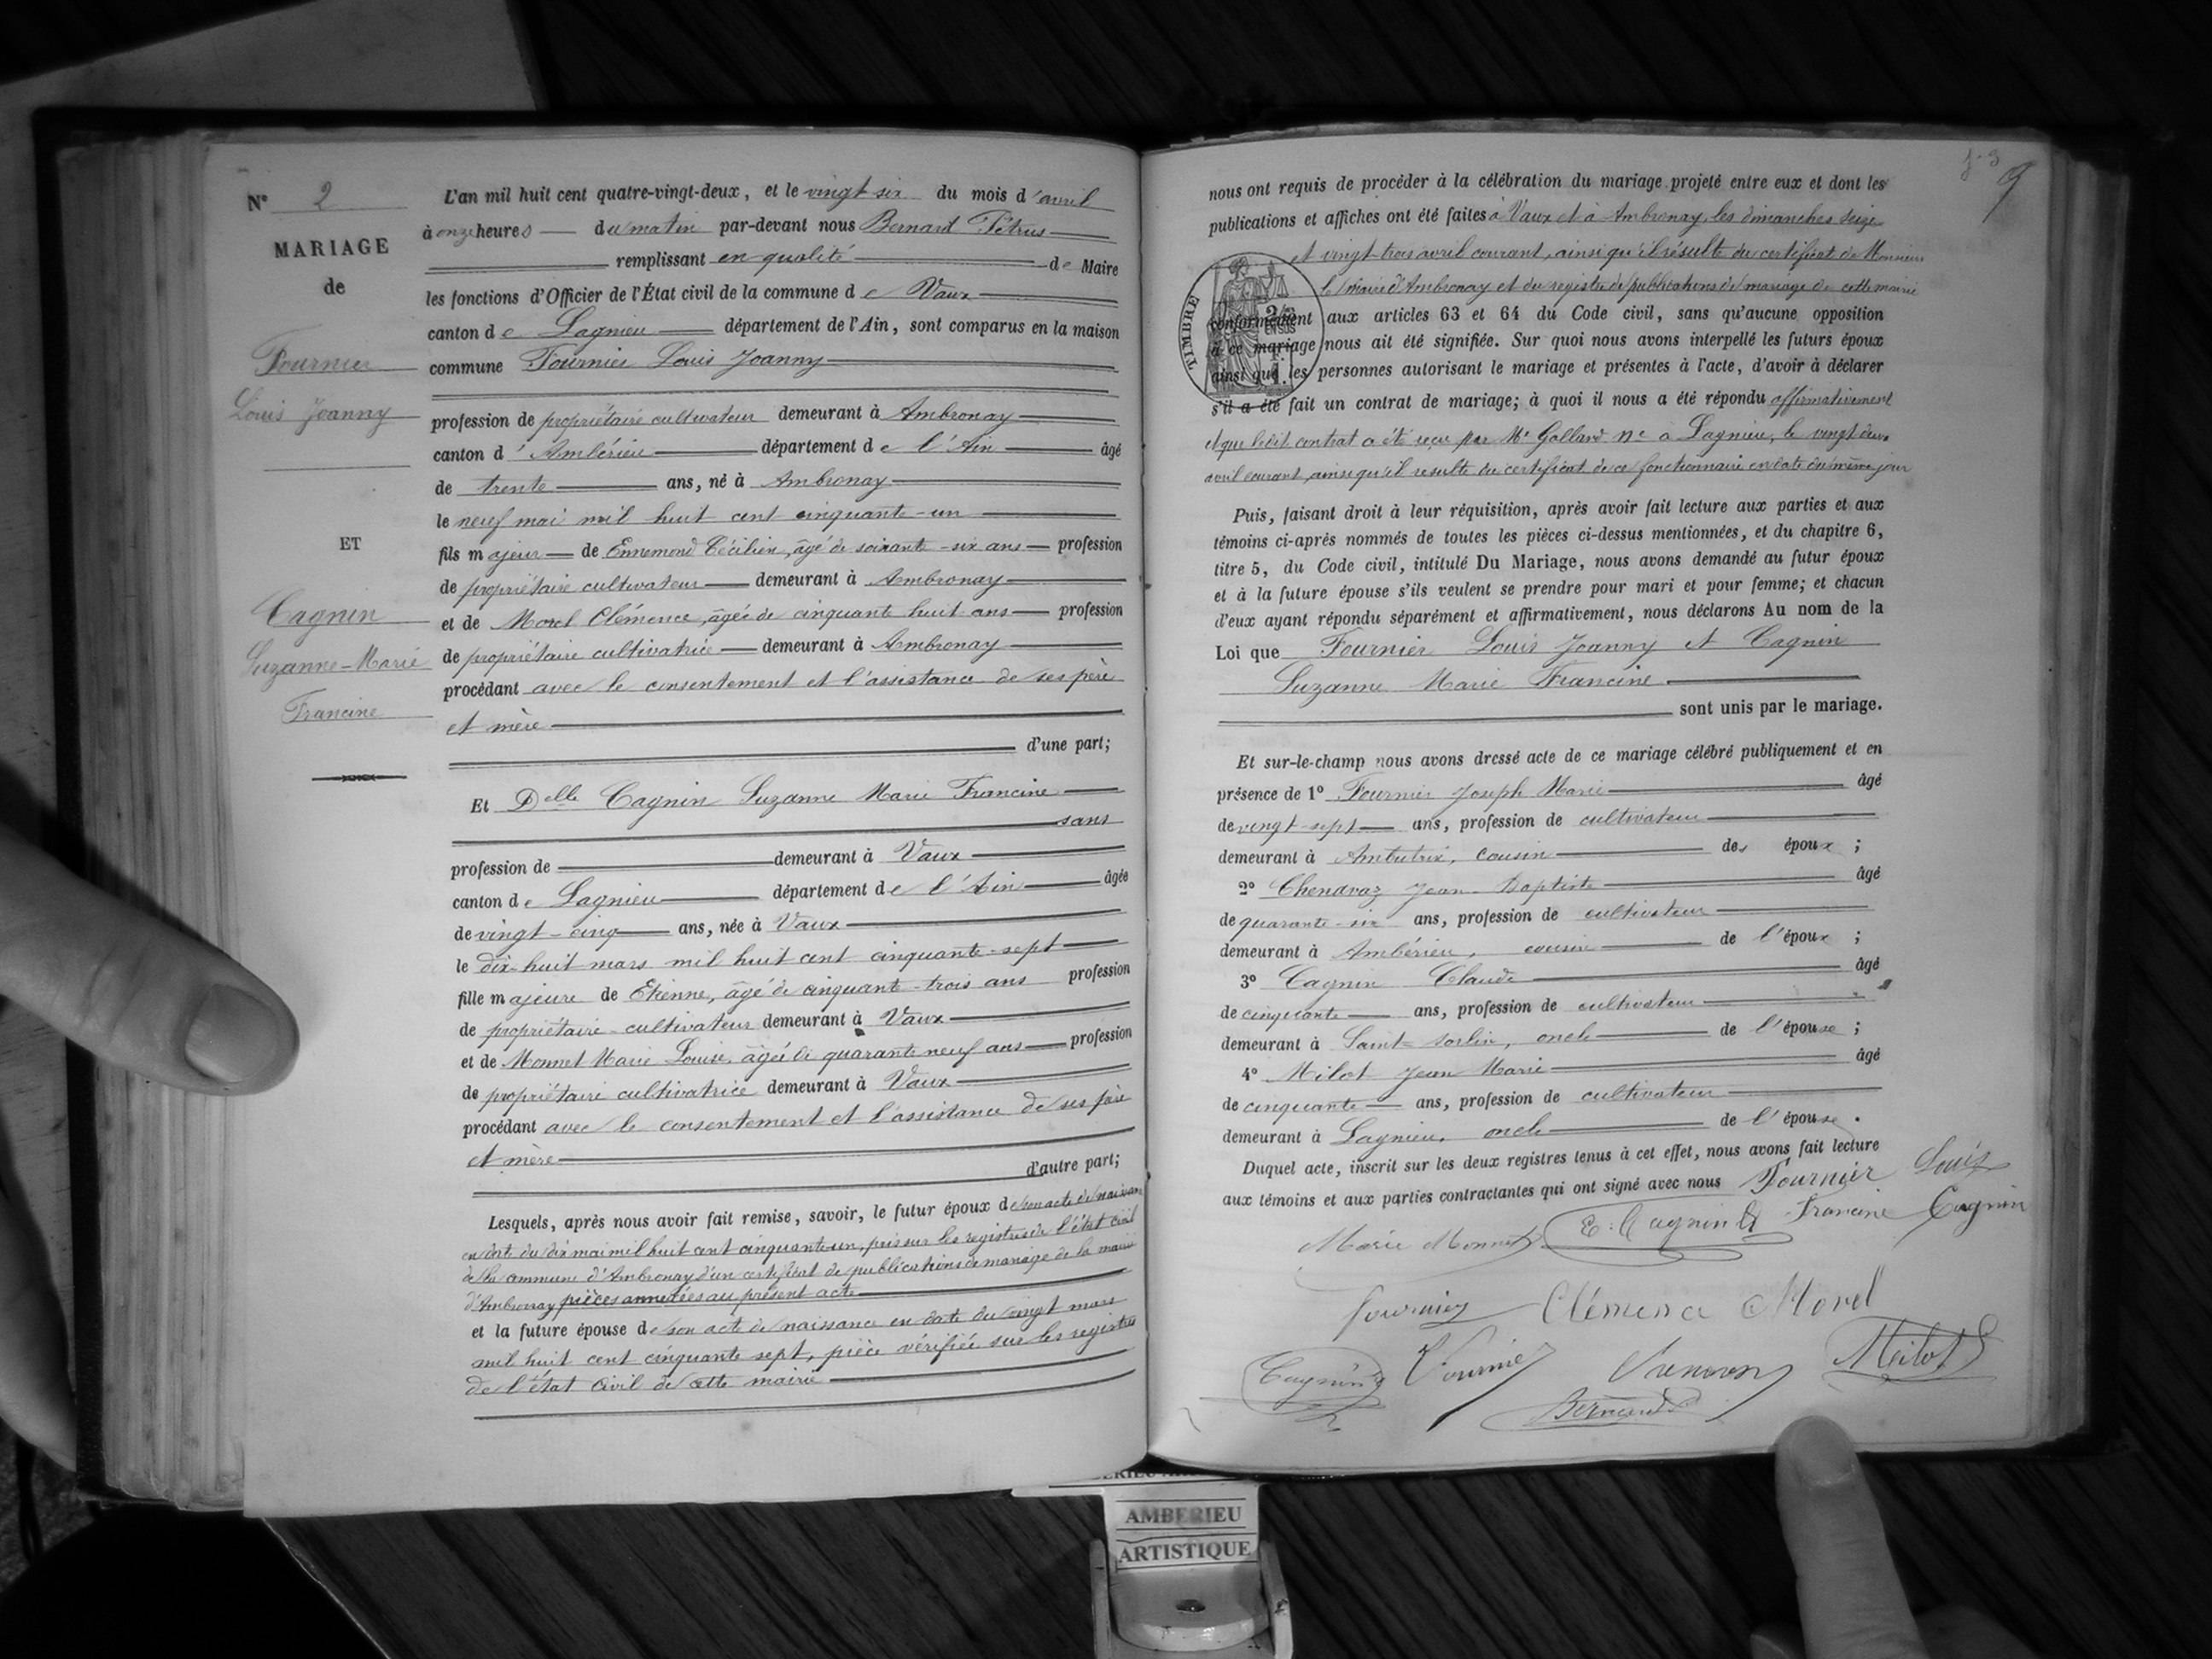 N° 2
MARIAGE
de
Fournier
Louis Joanny
ET
Cagnin
Suzanne-Marie
Francine
L'an mil huit cent quatre-vingt-deux, et le vingt six du mois d'avril
à onze heures du matin par-devant nous Bernard Pétrus
remplissant en qualité de Maire
les fonctions d'Officier de l'État civil de la commune de Vaux
canton de Lagnieu département de l'Ain, sont comparus en la maison
commune Fournier Louis Joanny
profession de propriétaire cultivateur demeurant à Ambronay
canton d'Ambérieu département de l'Ain âgé
de trente ans, né à Ambronay
le neuf mai mil huit cent cinquante-un
fils majeur de Ennemond Cécilien, âgé de soixante-six ans profession
de propriétaire cultivateur demeurant à Ambronay
et de Morel Clémence, âgée de cinquante huit ans profession
de propriétaire cultivatrice demeurant à Ambronay
procédant avec le consentement et l'assistance de ses père
et mère
d'une part;
Et Delle Cagnin Suzanne Marie Francine
sans
profession de demeurant à Vaux
canton de Lagnieu département de l'Ain âgée
de vingt-cinq ans, née à Vaux
le dix-huit mars mil huit cent cinquante-sept
fille majeure de Etienne, âgé de cinquante-trois ans profession
de propriétaire-cultivateur demeurant à Vaux
et de Monnet Marie Louise, âgée de quarante neuf ans profession
de propriétaire cultivatrice demeurant à Vaux
procédant avec le consentement et l'assistance de ses père
et mère
d'autre part;
Lesquels, après nous avoir fait remise, savoir, le futur époux de son acte de naissance
en date du dix mai mil huit cent cinquante un, pris sur les registres de l'état civil
de la commune d'Ambronay d'un certificat de publications de mariage de la mairie
d'Ambronay pièces annexées au présent acte
et la future épouse de son acte de naissance en date du vingt mars
mil huit cent cinquante sept, pièce vérifiée sur les registres
de l'état civil de cette mairie
9
nous ont requis de procéder à la célébration du mariage projeté entre eux et dont les
publications et affiches ont été faites à Vaux et à Ambronay, les dimanches seize
et vingt-trois avril courant, ainsi qu'il résulte du certificat de Monsieur
le maire d'Ambronay et du registre de publications de mariage de cette mairie
TIMBRE
2/10
EN SUS
conformément aux articles 63 et 64 du Code civil, sans qu'aucune opposition
à ce mariage nous ait été signifiée. Sur quoi nous avons interpellé les futurs époux
ainsi que les personnes autorisant le mariage et présentes à l'acte, d'avoir à déclarer
s'il a été fait un contrat de mariage; à quoi il nous a été répondu affirmativement
et que ledit contrat a été reçu par Me Golland ne à Lagnieu, le vingt deux
avril courant, ainsi qu'il résulte du certificat de ce fonctionnaire en date du même jour
Puis, faisant droit à leur réquisition, après avoir fait lecture aux parties et aux
témoins ci-après nommés de toutes les pièces ci-dessus mentionnées, et du chapitre 6,
titre 5, du Code civil, intitulé Du Mariage, nous avons demandé au futur époux
et à la future épouse s'ils veulent se prendre pour mari et pour femme; et chacun
d'eux ayant répondu séparément et affirmativement, nous déclarons Au nom de la
Loi que Fournier Louis Joanny et Cagnin
Suzanne Marie Francine
sont unis par le mariage.
Et sur-le-champ nous avons dressé acte de ce mariage célébré publiquement et en
présence de 1° Fournier Joseph Marie âgé
de vingt-sept ans, profession de cultivateur
demeurant à Ambutrix, cousin des époux;
2° Chenavaz Jean-Baptiste âgé
de quarante-six ans, profession de cultivateur
demeurant à Ambérieu, cousin de l'époux;
3° Cagnin Claude âgé
de cinquante ans, profession de cultivateur
demeurant à Saint-Sorlin, oncle de l'épouse;
4° Milot Jean Marie âgé
de cinquante ans, profession de cultivateur
demeurant à Lagnieu, oncle de l'épouse.
Duquel acte, inscrit sur les deux registres tenus à cet effet, nous avons fait lecture
aux témoins et aux parties contractantes qui ont signé avec nous Fournier Louis
Marie Monnet E. Cagnin Francine Cagnin
Fournier Clémence Morel
Cagnin Fournier Milot
Bernard
AMBERIEU
ARTISTIQUE